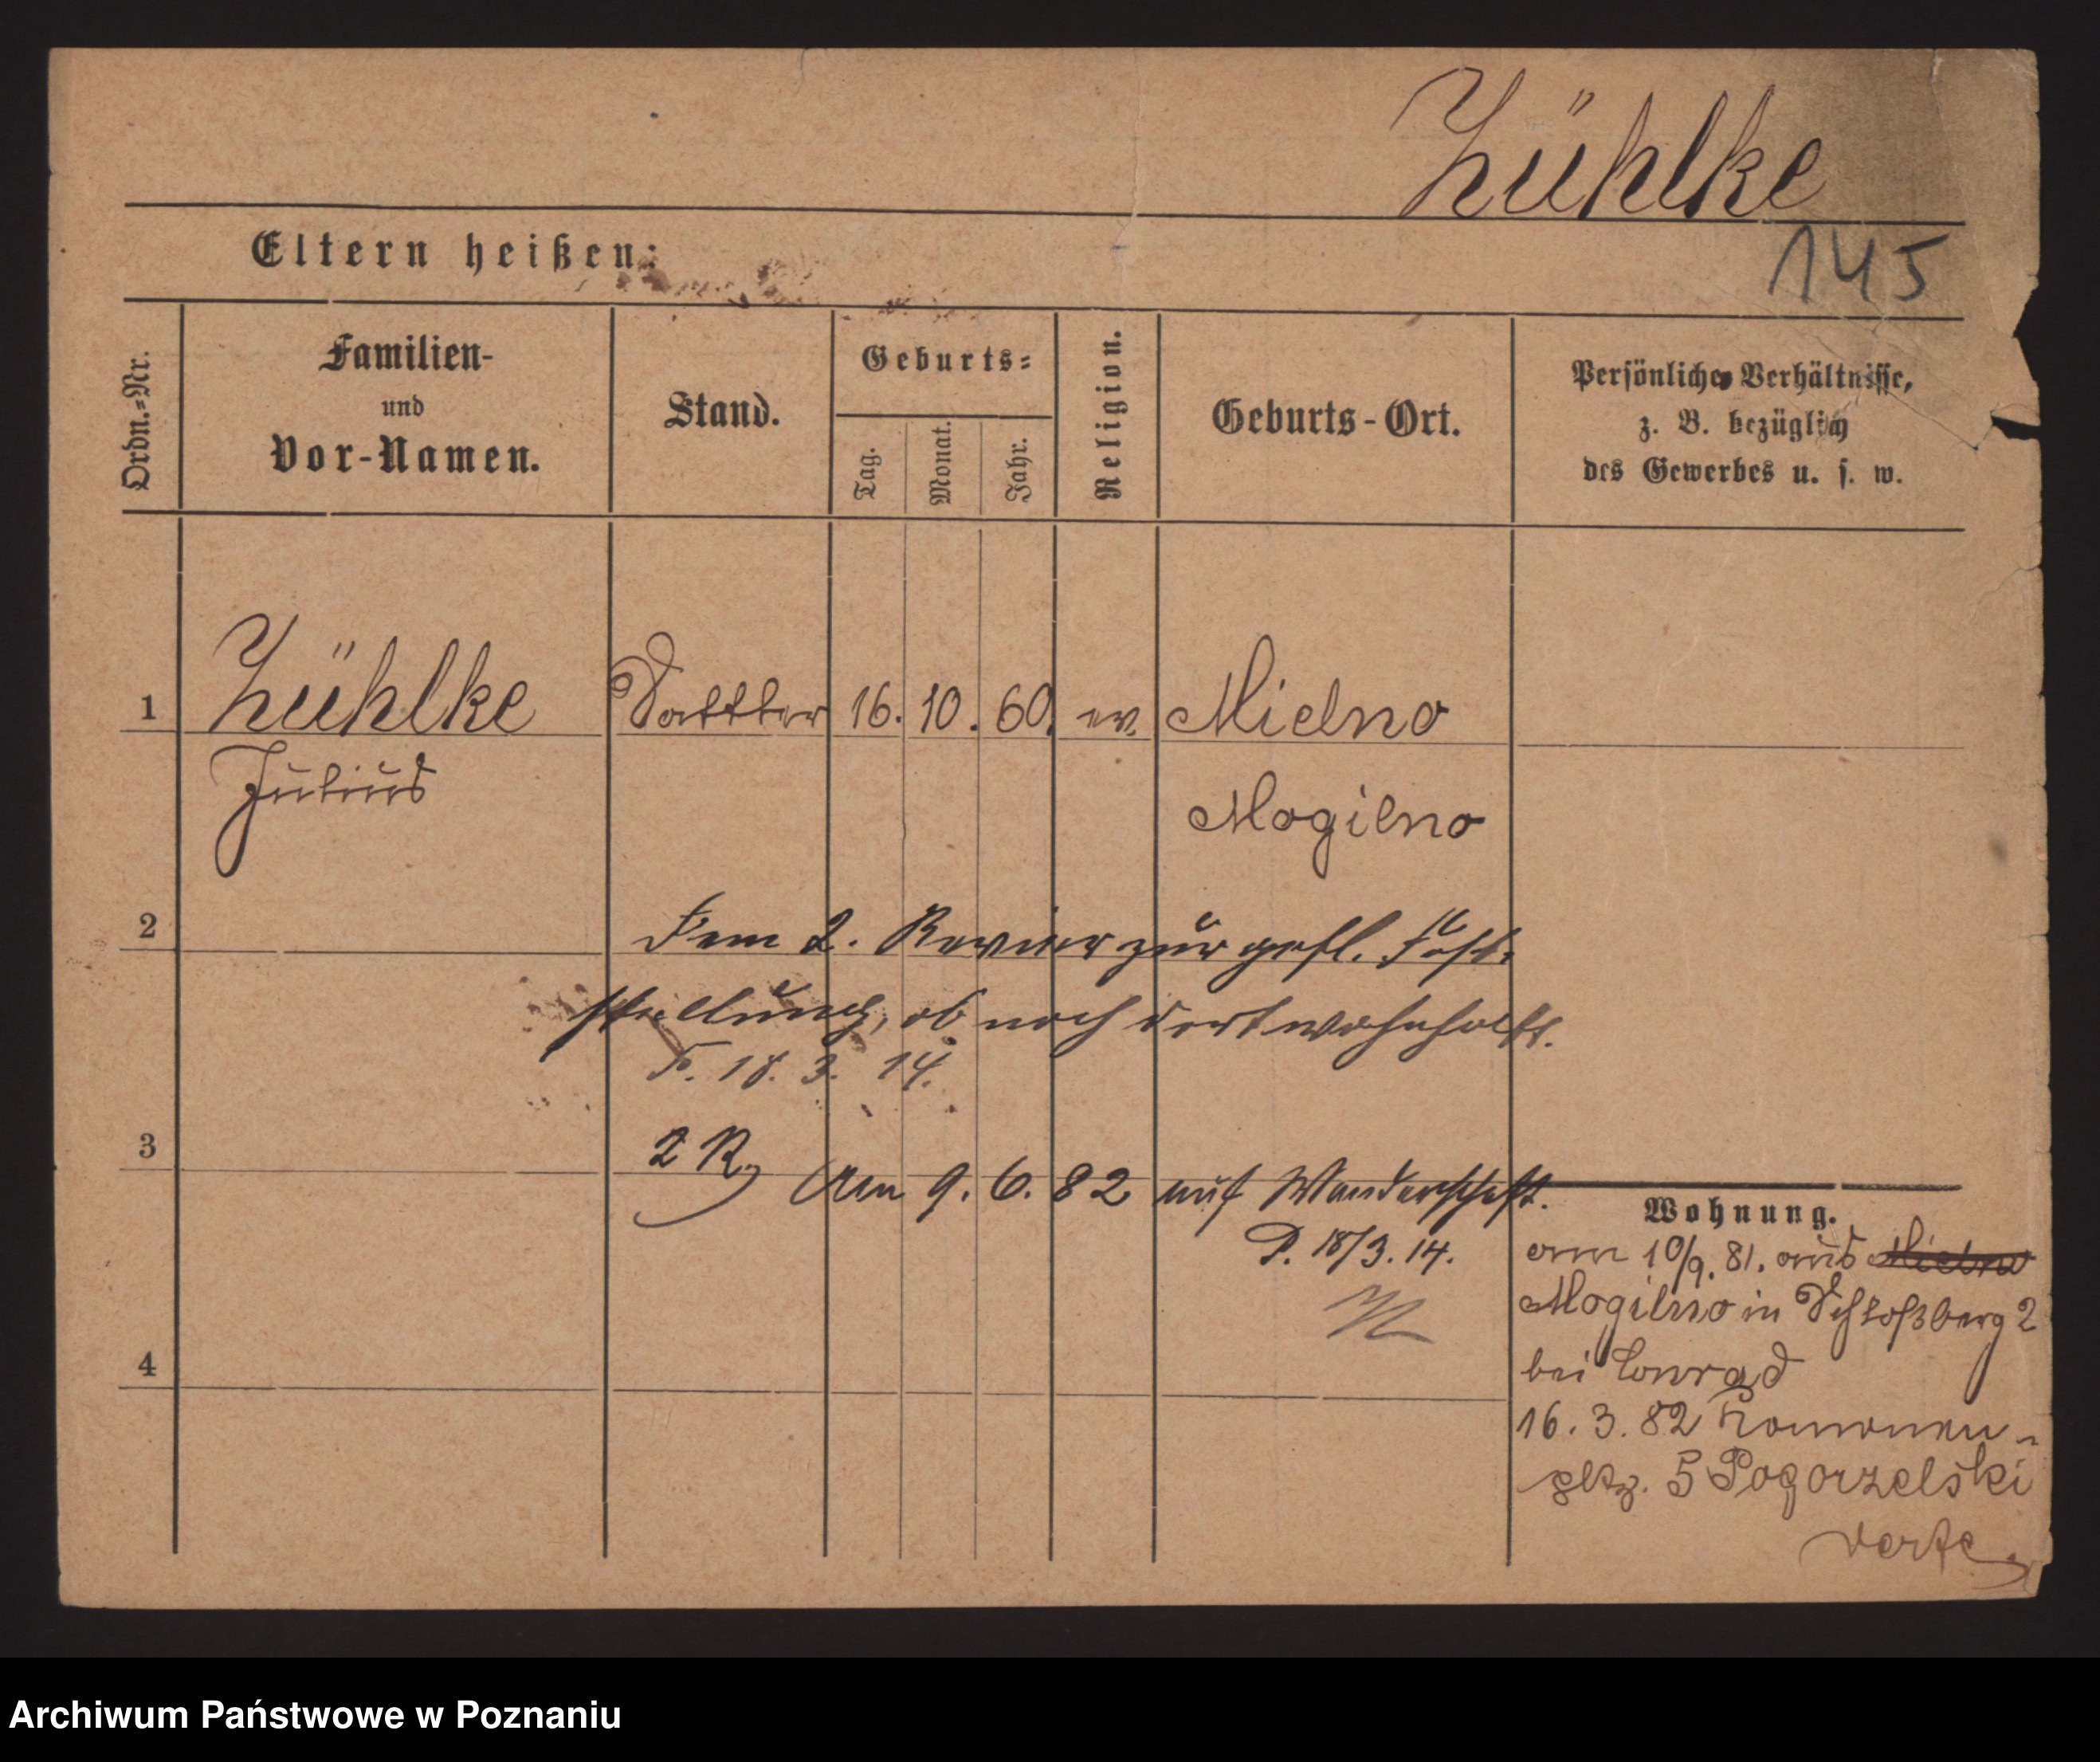 Zühlke
145
Eltern heißen:
Ordn.=Nr.
Familien-
und
Vor-Namen.
Stand.
Geburts=
Tag.
Monat.
Jahr.
Religion.
Geburts-Ort.
Persönliche Verhältnisse,
z. B. bezüglich
des Gewerbes u. s. w.
1 Zühlke Sattler 16. 10. 60. ev. Mielno
Julius
Mogilno
2 Dem 2. Revier zur gefl. Fest-
stellung, ob noch dort wohnhaft.
P. 18. 3. 14.
3 2 R. Am 9. 6. 82 auf Wanderschaft.
P. 18/3. 14.
Wohnung.
am 10/9. 81. aus Mielno
Mogilno in Schloßberg 2
bei Conrad
16. 3. 82 Romanen-
5 Pogorzelski
4